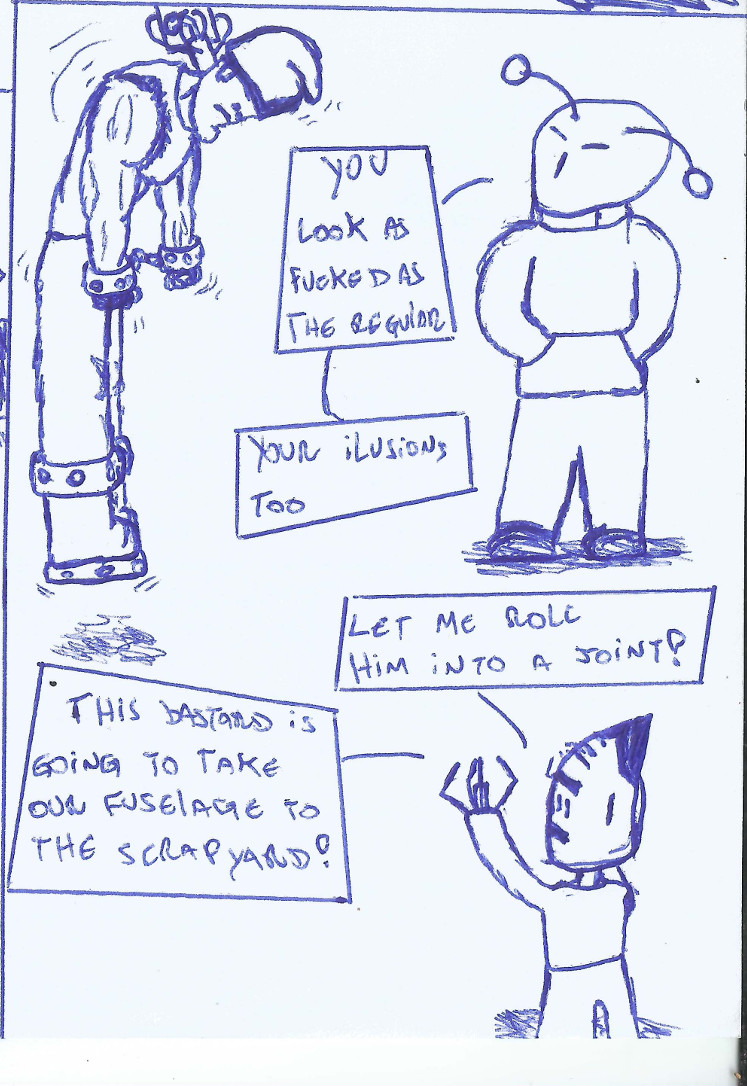 YOU
LOOK AS
FUCKED AS
THE REGULAR
YOUR ILUSIONS
TOO
LET ME ROLL
HIM INTO A JOINT?
THIS BASTARD IS
GOING TO TAKE
OUR FUSELAGE TO
THE SCRAPYARD?